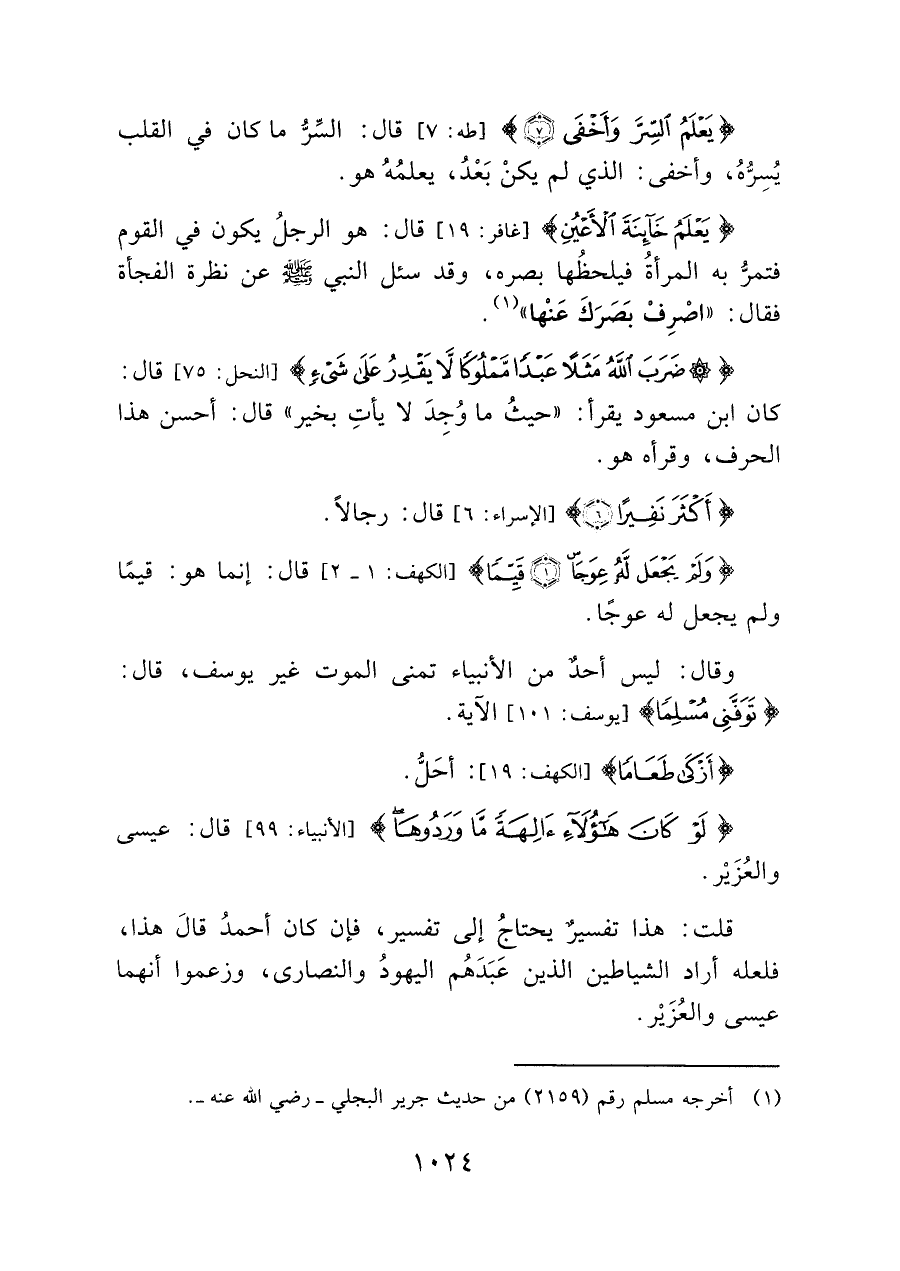 ﴿ يَعْلَمُ ٱلسِّرَّ وَأَخْفَى ۝٧ ﴾ [طه: ٧] قال: السِّرُّ ما كان في القلب
يُسِرُّهُ، وأخفى: الذي لم يكنْ بَعْدُ، يعلمُهُ هو.
﴿ يَعْلَمُ خَآئِنَةَ ٱلْأَعْيُنِ﴾ [غافر: ١٩] قال: هو الرجلُ يكون في القوم
فتمرُّ به المرأةُ فيلحظُها بصره، وقد سئل النبي ﷺ عن نظرة الفجأة
فقال: «اصْرِفْ بَصَرَكَ عَنْها»(١).
﴿ ۞ ضَرَبَ ٱللَّهُ مَثَلًا عَبْدًا مَّمْلُوكًا لَّا يَقْدِرُ عَلَىٰ شَىْءٍ ﴾ [النحل: ٧٥] قال:
كان ابن مسعود يقرأ: «حيثُ ما وُجِدَ لا يأتِ بخير» قال: أحسن هذا
الحرف، وقرأه هو.
﴿ أَكْثَرَ نَفِيرًا ۝٦ ﴾ [الإسراء: ٦] قال: رجالاً.
﴿ وَلَمْ يَجْعَل لَّهُۥ عِوَجَاۜ ۝١ قَيِّمًا ﴾ [الكهف: ١ ـ ٢] قال: إنما هو: قيمًا
ولم يجعل له عوجًا.
وقال: ليس أحدٌ من الأنبياء تمنى الموت غير يوسف، قال:
﴿ تَوَفَّنِى مُسْلِمًا﴾ [يوسف: ١٠١] الآية.
﴿ أَزْكَىٰ طَعَامًا﴾ [الكهف: ١٩]: أحَلُّ.
﴿ لَوْ كَانَ هَٰٓؤُلَآءِ ءَالِهَةً مَّا وَرَدُوهَاۖ ﴾ [الأنبياء: ٩٩] قال: عيسى
والعُزَيْر.
قلت: هذا تفسيرٌ يحتاجُ إلى تفسير، فإن كان أحمدُ قالَ هذا،
فلعله أراد الشياطين الذين عَبَدَهُم اليهودُ والنصارى، وزعموا أنهما
عيسى والعُزَيْر.
(١) أخرجه مسلم رقم (٢١٥٩) من حديث جرير البجلي ـ رضي الله عنه ـ.
١٠٢٤